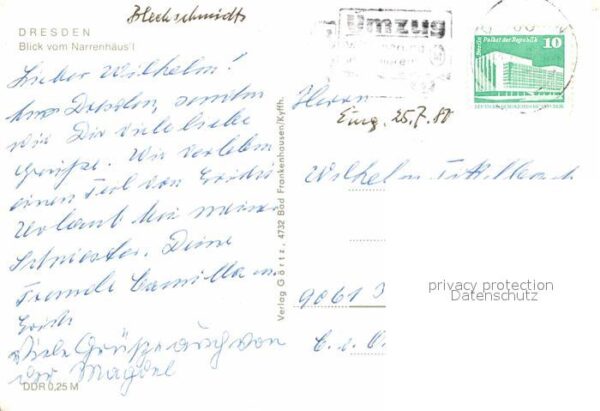 Blechschmidts
DRESDEN
Blick vom Narrenhäus'l
Lieber Wilhelm!
Aus Dresden, senden
wir Dir viele liebe
Grüße. Wir verleben
einen Teil von Erichs
Urlaub bei meiner
Schwester. Deine
Freunde Camilla u.
Erich
Viele Grüße auch von
der Magdel
DDR 0,25 M
Verlag Görtz, 4732 Bad Frankenhausen/Kyffh.
Umzug
Berlin Palast der Republik
10
Herrn
Eing. 25.7.80
Wilhelm
9061
privacy protection
Datenschutz